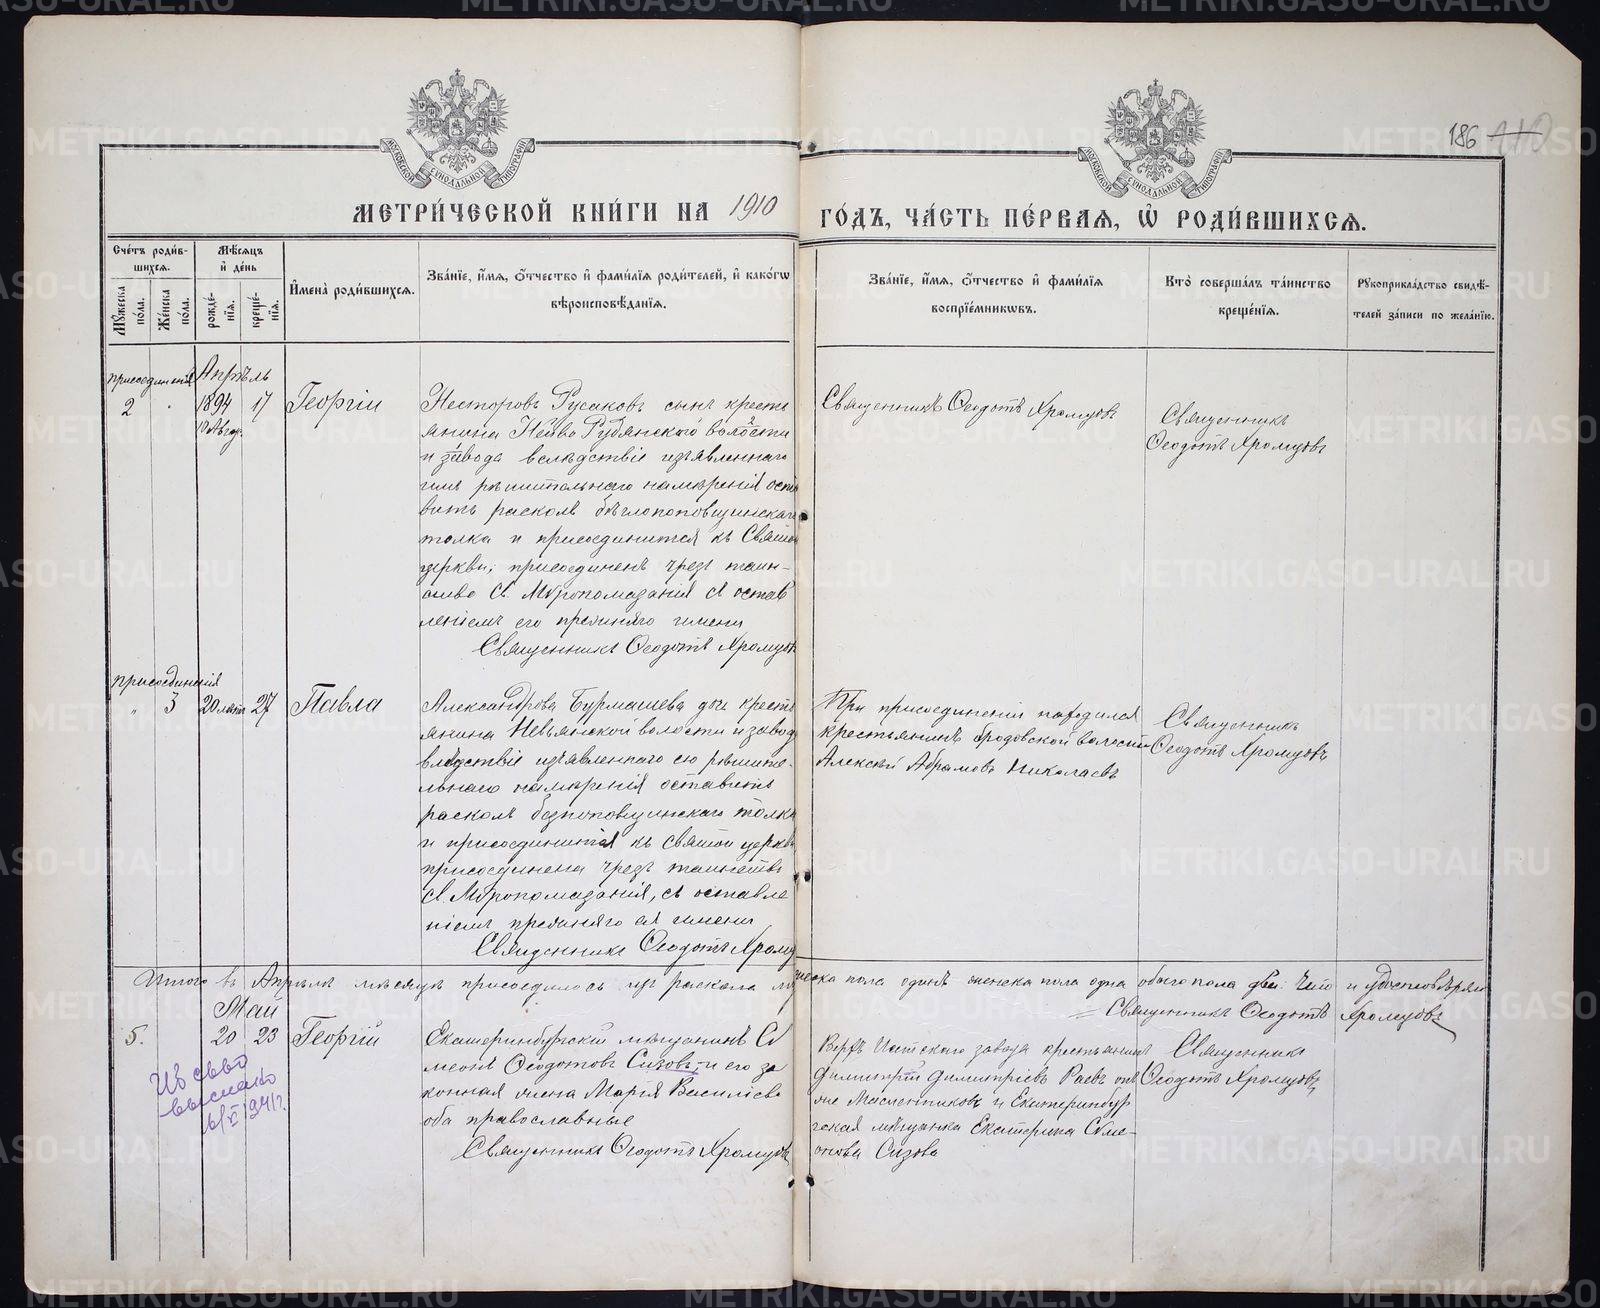 МЕТРИ́ЧЕСКОЙ КНИ́ГИ НА 1910 ГО́ДЪ, ЧА́СТЬ ПЕ́РВАЯ, Ѡ РОДИ́ВШИХСЯ.
186
МОСКОВСКОЙ СѴНОДАЛЬНОЙ ТИПОГРАФІИ
МОСКОВСКОЙ СѴНОДАЛЬНОЙ ТИПОГРАФІИ
Сче́тъ роди́вшихся.
Мѣ́сяцъ и҆ де́нь
Мꙋ́жеска по́ла.
Же́нска по́ла.
рожде́нїя.
креще́нїя.
И҆мена̀ роди́вшихся.
Зва́нїе, и҆́мя, ѻ҆́тчество и҆ фами́лїя роди́телей, и҆ како́гѡ вѣроисповѣ́данїя.
Зва́нїе, и҆́мя, ѻ҆́тчество и҆ фами́лїя воспрїе́мникѡвъ.
Кто̀ соверша́лъ та́инство креще́нїя.
Рꙋкоприкла́дство свидѣ́телей за́писи по жела́нїю.
присоединенія
Апрѣль
2 1894 17 Георгій
Несторовъ Русаковъ сынъ крестьянина Нейво Рудянской волости
и завода вслѣдствіе изъявленнаго
имъ рѣшительнаго намѣренія оста
вить расколъ бѣглопоповщинскаго
толка и присоединится къ Святой
церкви, присоединенъ чрезъ таин-
ство Св. Мѵропомазанія съ остав
леніемъ его прежняго имени
Священникъ Ѳеодотъ Хромцовъ
Священникъ Ѳеодотъ Хромцовъ
Священникъ
Ѳеодотъ Хромцовъ
присоединенія
" 3 20 лѣтъ 27 Павла
Александрова Бурмашева дочь кресть
янина Невьянской волости и завода
вслѣдствіе изъявленнаго ею рѣшите-
льнаго намѣренія оставить
расколъ безпоповщинскаго толка
и присоединится къ святой церкви
присоединена чрезъ таинство
Св. Мѵропомазанія, съ оставле
ніемъ прежняго ея имени
Священникъ Ѳеодотъ Хромц
При присоединеніи находился
крестьянинъ Бродовской волости
Алексѣй Абрамовъ Николаевъ
Священникъ
Ѳеодотъ Хромцовъ
Итого въ Апрѣлѣ мѣсяцѣ присоединилось изъ раскола мужеска пола одинъ женска пола одна обоего пола два. Чѣмъ и удостовѣряю
Священникъ Ѳеодотъ Хромцовъ
Май
5. 20 23 Георгій
Екатеринбургскій мѣщанинъ Си
меонъ Ѳеодотовъ Сизовъ и его за
конная жена Марія Василіева
оба православные
Священникъ Ѳеодотъ Хромцовъ
Верхъ Исетскаго завода крестьянинъ
Димитрій Димитріевъ Раевъ
Масленниковъ и Екатеринбур
гская мѣщанка Екатерина Симе-
онова Сизова
Священникъ
Ѳеодотъ Хромцовъ
выслано
METRIKI.GASO-URAL.RU